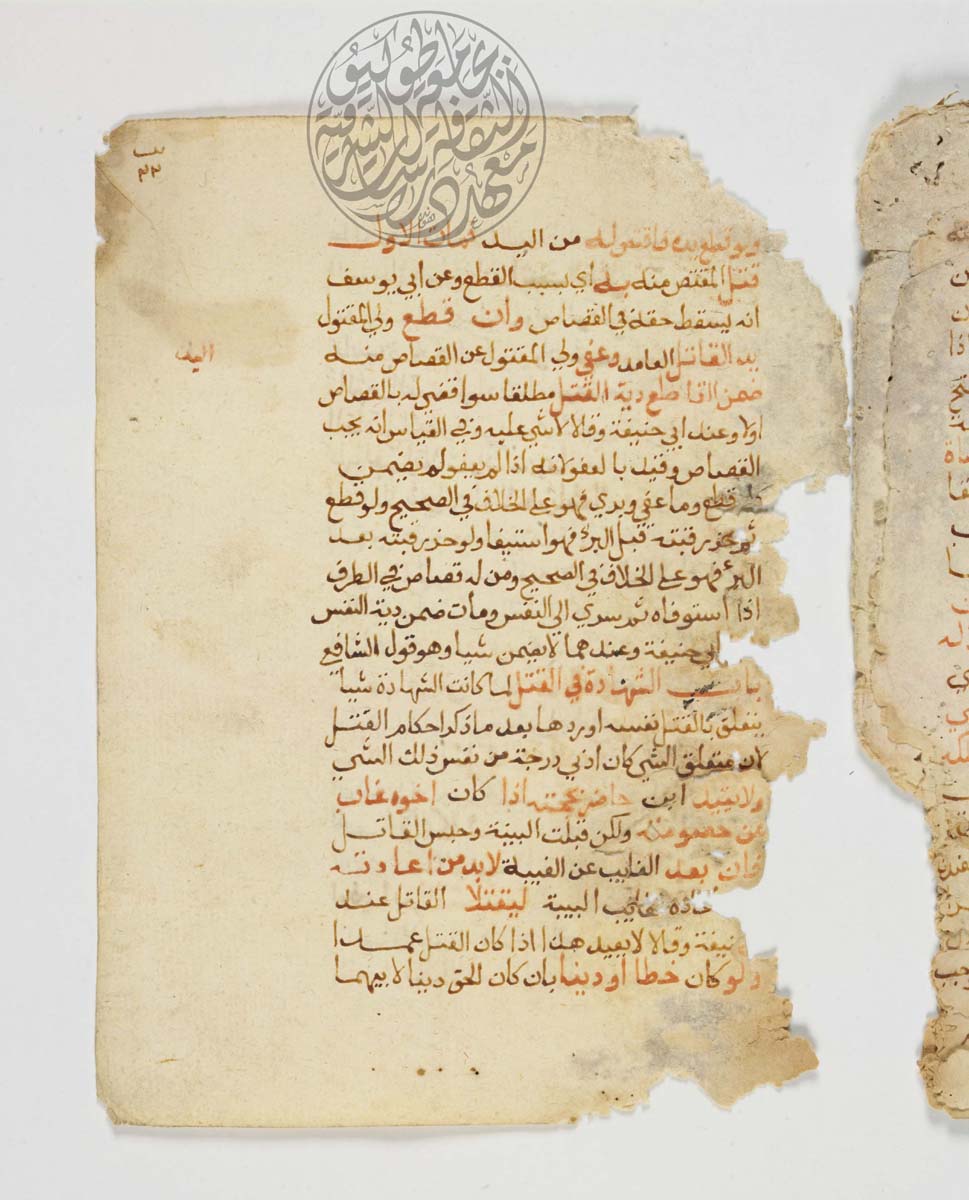 ولو قطع يده فاقتص له من اليد فمات الاول
قتل المقتص منه به اي بسبب القطع وعن ابي يوسف
انه يسقط حقه في القصاص وان قطع ولي المقتول
يد القاتل العامد وعفي ولي المقتول عن القصاص منه
اليد
ضمن القاطع دية القتل مطلقا سوا قضي له بالقصاص
اولا وعند ابي حنيفة وقالا لا شي عليه وفي القياس انه يجب
القصاص وقيد بالعفو لانه اذا لم يعفو لم يضمن
قطع وما عفي وبري فهو علي الخلاف في الصحيح ولو قطع
ثم حز رقبته قبل البرء فهو استيفا ولو حز رقبته بعد
البرء فهو علي الخلاف في الصحيح ومن له قصاص في الطرف
اذا استوفاه ثم سري الي النفس ومات ضمن دية النفس
ابي حنيفة وعندهما لا يضمن شيا وهو قول الشافعي
باب الشهادة في القتل لما كانت الشهادة شيا
يتعلق بالقتل نفسه اوردها بعد ما ذكر احكام القتل
لان متعلق الشي كان ادني درجة من نفس ذلك الشي
ولا يقيد ابن حاضر بحجته اذا كان اخوه غاب
عن خصومته ولكن قبلت البينة وحبس القاتل
فان يعد الغايب عن الغيبة لا بد من اعادته
البينة ليقتلا القاتل عند
حنيفة وقالا لا يعيد هذا اذا كان القتل عمدا
ولو كان خطا او دينا بان كان للحق دينا لابيهما